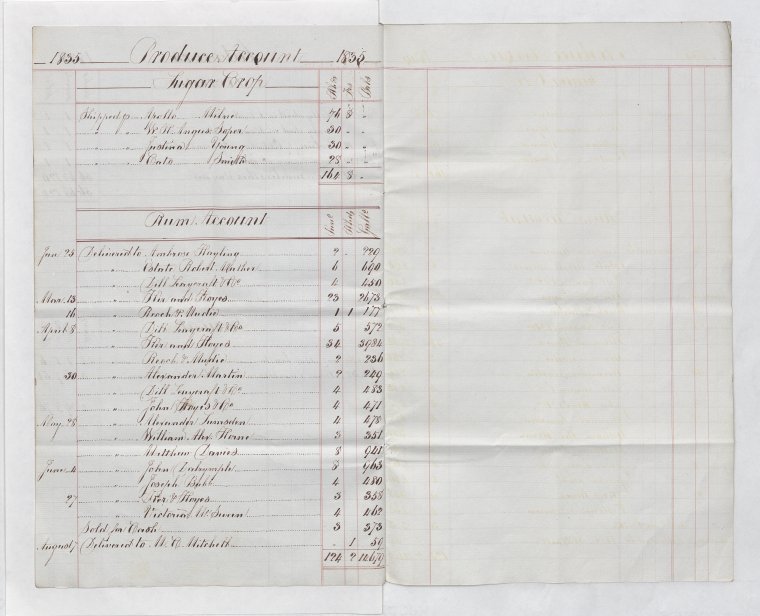 1835 Produce Account 1835
Sugar Crop Hhds Trs Brls
Shipped p Arollo Milne 76 8 "
" " W. N. Angus Soper 30 " "
" " Justina Young 30 " "
" " Cato Smith 28 " "
164 8 "
Rum Account Puns Hhds Galls
Jan 25 Delivered to Ambrose Hayling 2 " 220
" Estate Robert Mather 6 690
" Dill Leaycraft & Co 4 450
Mar. 13 " Iler and Noyes 23 2673
16 " Roach & Mudie 1 1 177
April 8 " Dill Leaycraft & Co 5 572
" Iler and Noyes 34 3984
" Roach & Mudie 2 236
30 " Alexander Martin 2 249
" Dill Leaycraft & Co 4 483
" John Noyes & Co 4 471
May 28 " Alexander Lumsden 4 478
" William Alex. Horne 3 351
" Matthew Davies 8 941
June 4 " John Dalrymple 8 963
" Joseph 4 480
27 " Iler & Noyes 3 358
" Victoria Mc Swein 4 462
Sold for Cash 3 373
August 7 Delivered to M. C. Mitchell " 1 59
124 2 14679